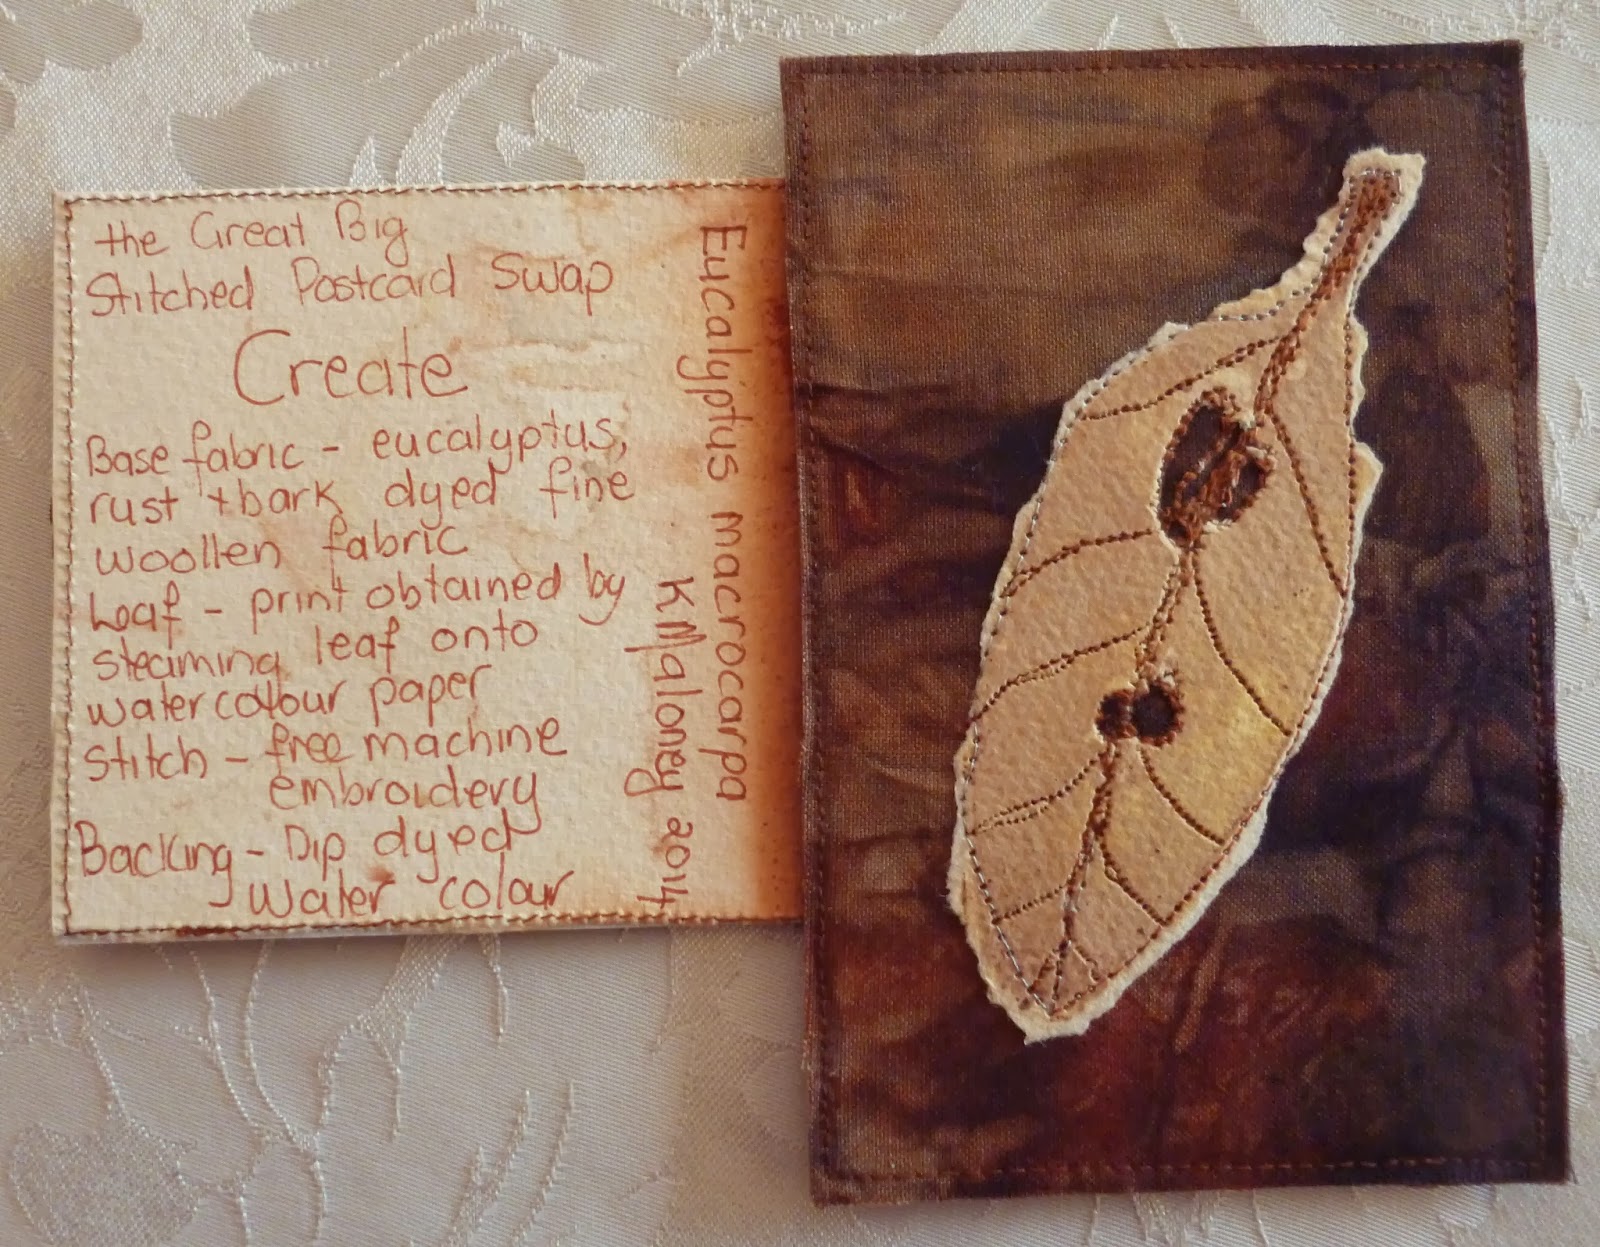 the Great Big
Stitched Postcard Swap
Create
Base fabric - eucalyptus,
rust + bark dyed fine
woollen fabric
Leaf - print obtained by
steaming leaf onto
watercolour paper
Stitch - free machine
embroidery
Backing - Dip dyed
water colour
Eucalyptus macrocarpa
K Maloney 2014